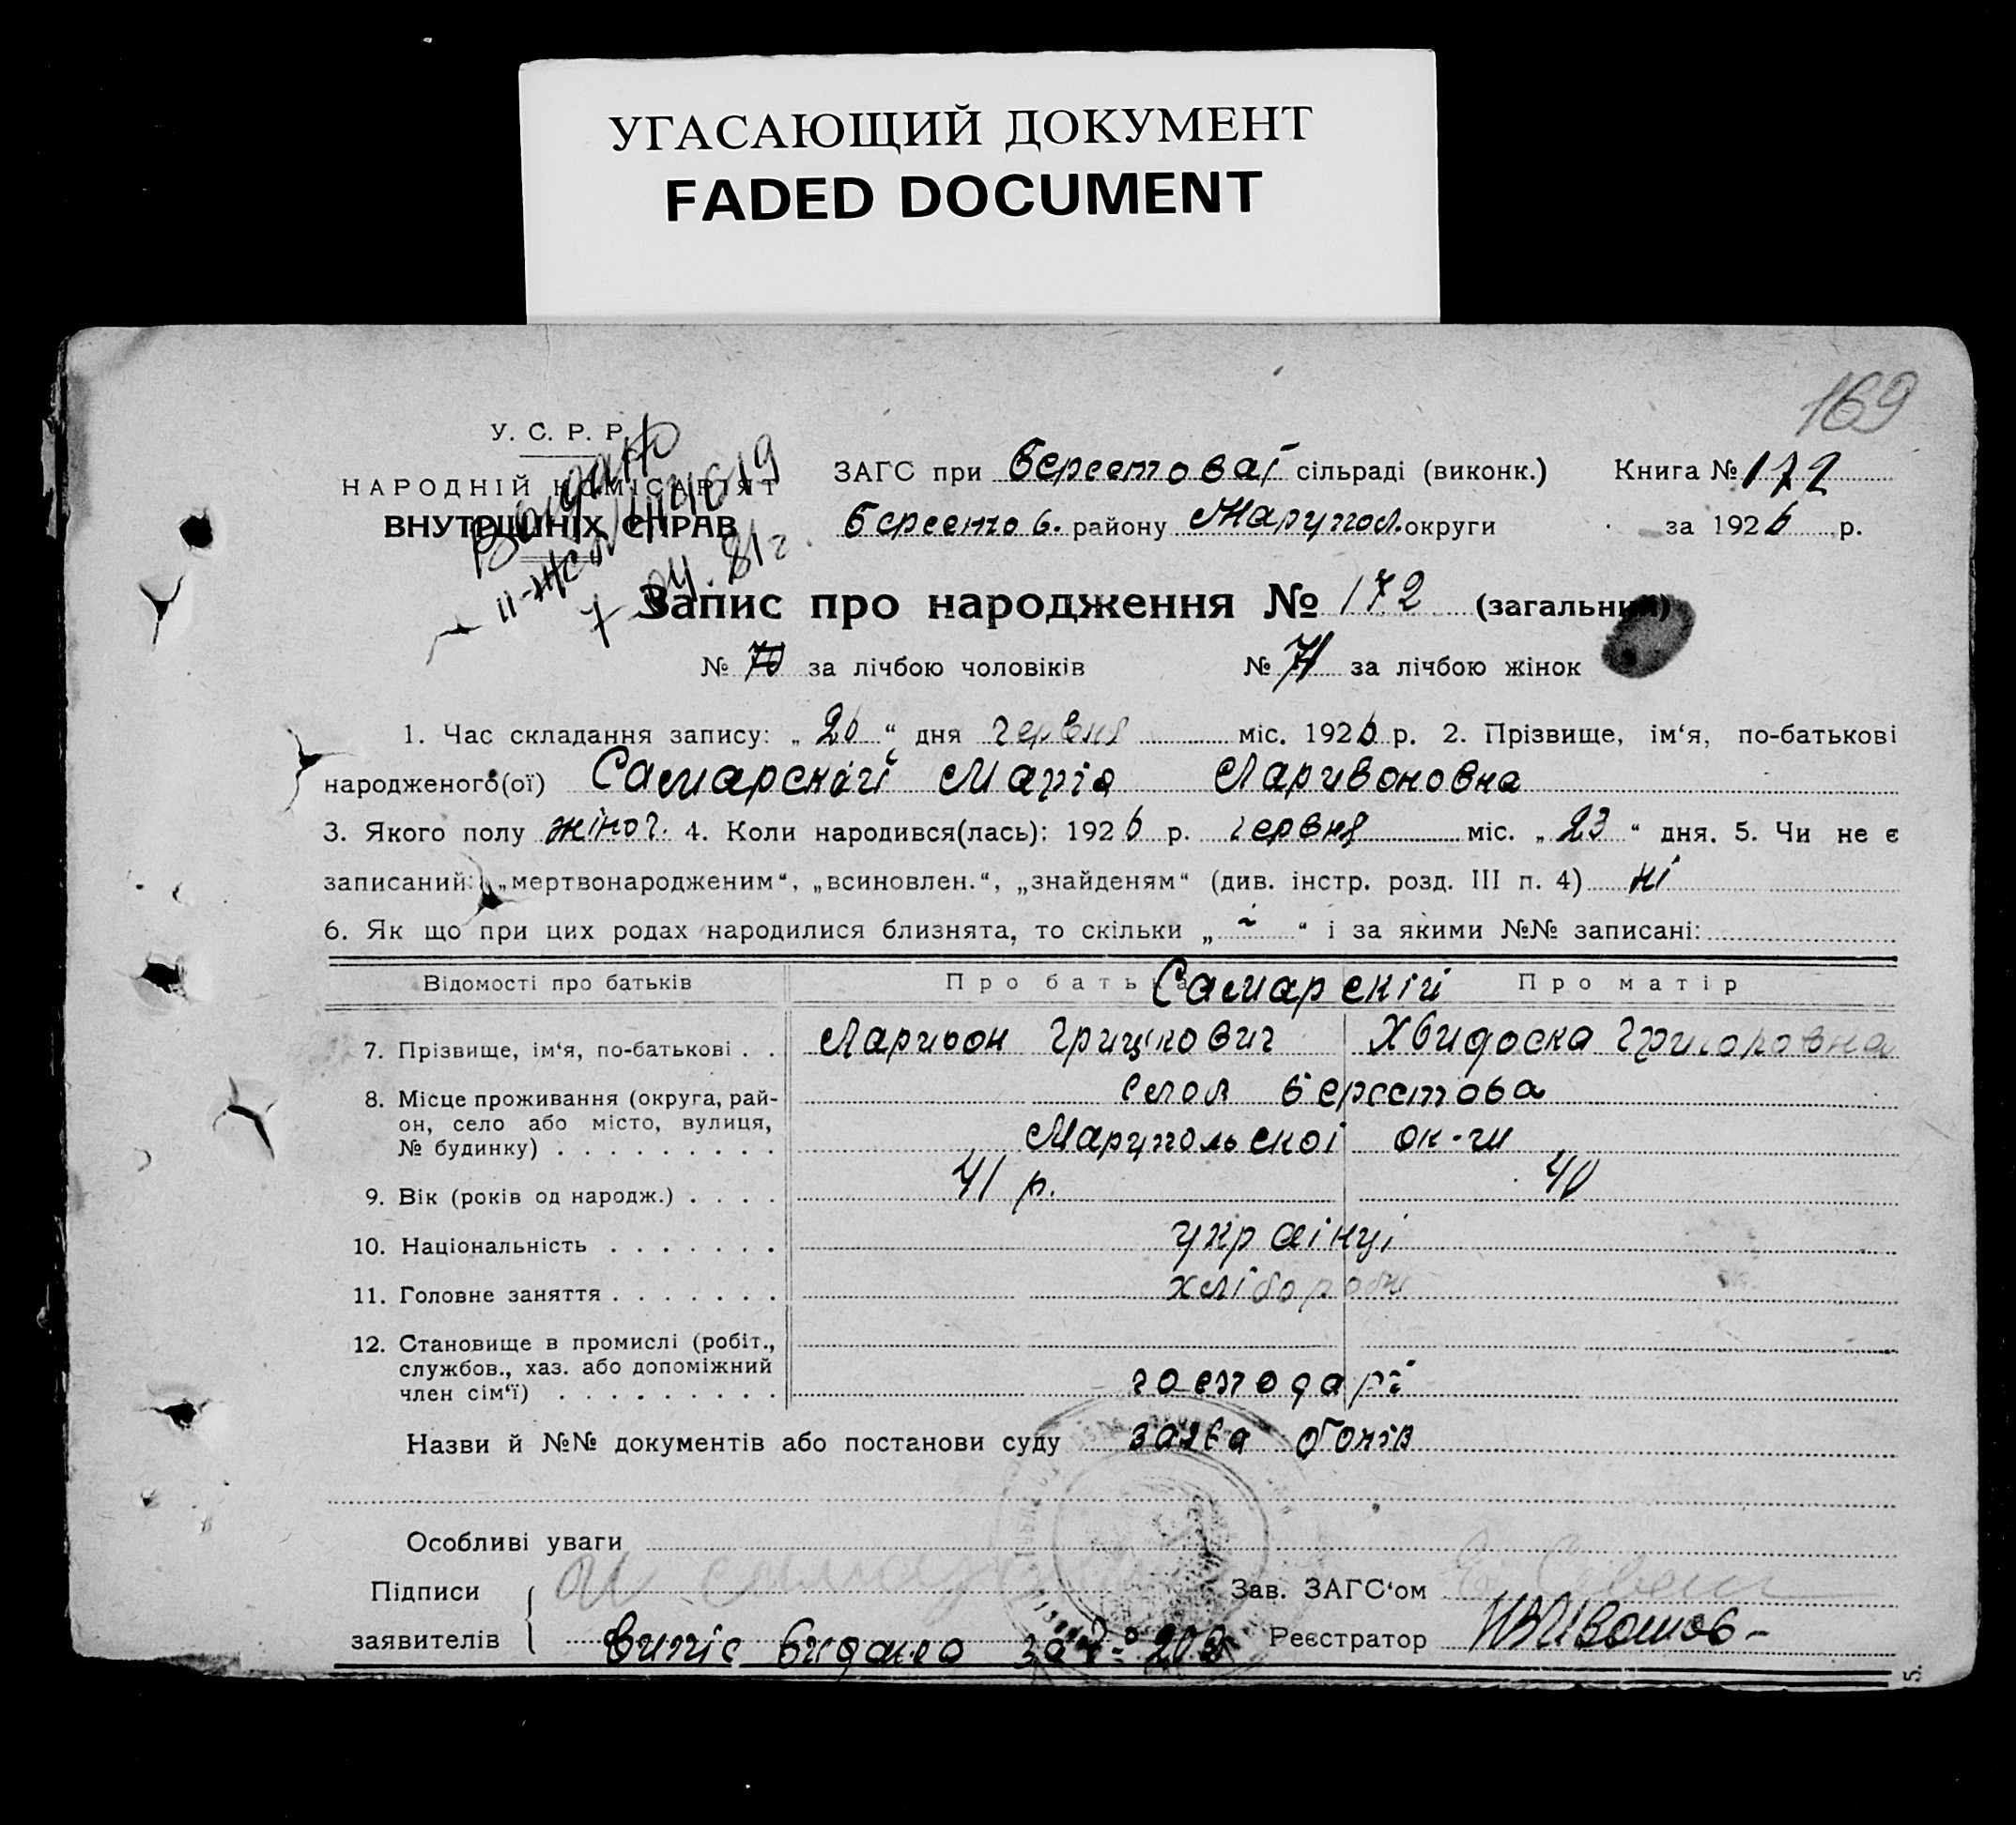 УГАСАЮЩИЙ ДОКУМЕНТ
FADED DOCUMENT
169
У. С. Р. Р.
НАРОДНІЙ КОМІСАРІЯТ
ВНУТРІШНІХ СПРАВ
Выдано
II-ЖС №
7 04. 81 г.
ЗАГС при Берестоваї сільраді (виконк.) Книга № 172
Берестов. району Маріупол. округи за 1926 р.
Запис про народження № 172 (загальний)
№ 70 за лічбою чоловіків № 71 за лічбою жінок
1. Час складання запису: „ 26 “ дня червня міс. 1926 р. 2. Прізвище, ім‘я, по-батькові
народженого(ої) Самарскій Марія Ларивоновна
3. Якого полу жіноч. 4. Коли народився(лась): 1926 р. червня міс. „ 23 “ дня. 5. Чи не є
записаний: „мертвонародженим“, „всиновлен.“, „знайденям“ (див. інстр. розд. III п. 4) ні
6. Як що при цих родах народилися близнята, то скільки „ ~ “ і за якими №№ записані:
Відомості про батьків Про батька Самарскій Про матір
7. Прізвище, ім‘я, по-батькові . . Ларивон Грицкович Хвидоска Григоровна
8. Місце проживання (округа, рай-
он, село або місто, вулиця,
№ будинку) . . . . . . . . .
Село Берестова
Маріупольскоі ок-ги
9. Вік (років од народж.) . . . . 41 р. 40
10. Національність . . . . . . . украінці
11. Головне заняття . . . . . . . хлібороби
12. Становище в промислі (робіт.,
службов., хаз. або допоміжний
член сім‘ї) . . . . . . . . . господарі
Назви й №№ документів або постанови суду заява
Особливі уваги
Підписи
заявителів
Зав. ЗАГС‘ом
Випіс видано за №
Реєстратор
5.